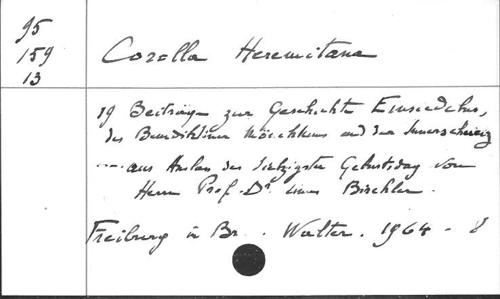 95
159
13
Corolla Heremitana
19 Beiträge zur Geschichte Einsiedelns,
des Benediktiner Mönchtums und der Innerschweiz
.... aus Anlass des siebzigsten Geburtstag von
Herrn Prof. Dr. Linus Birchler.
Freiburg in Br. Walter. 1964. 8